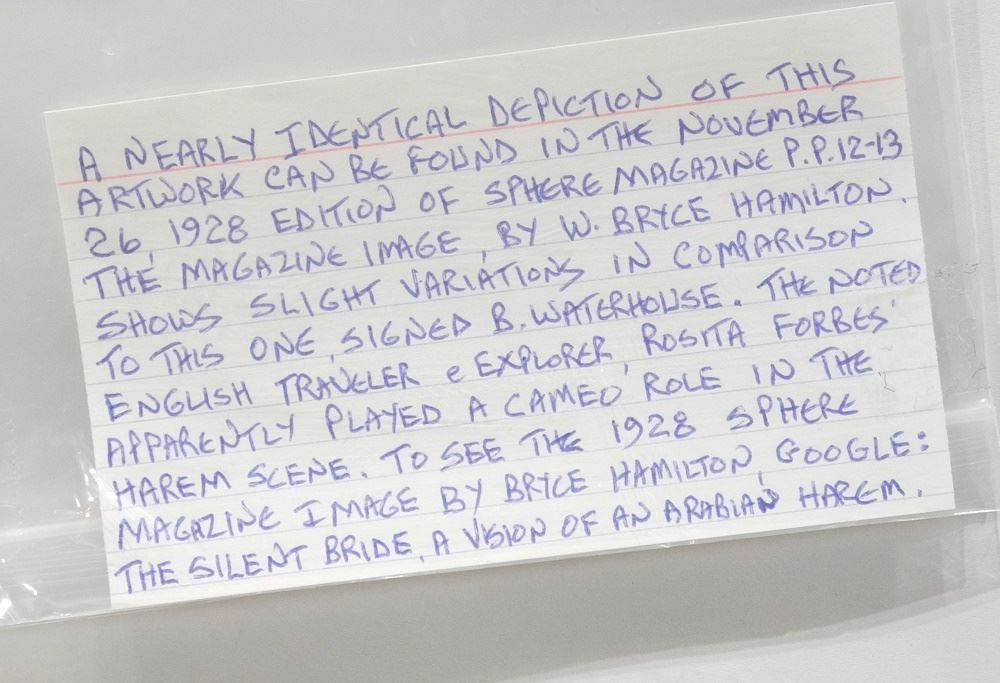 A NEARLY IDENTICAL DEPICTION OF THIS
ARTWORK CAN BE FOUND IN THE NOVEMBER
26, 1928 EDITION OF SPHERE MAGAZINE P.P.12-13
THE MAGAZINE IMAGE, BY W. BRYCE HAMILTON,
SHOWS SLIGHT VARIATIONS IN COMPARISON
TO THIS ONE, SIGNED B. WATERHOUSE. THE NOTED
ENGLISH TRAVELER & EXPLORER, ROSITA FORBES'
APPARENTLY PLAYED A CAMEO ROLE IN THE
HAREM SCENE. TO SEE THE 1928 SPHERE
MAGAZINE IMAGE BY BRYCE HAMILTON, GOOGLE:
THE SILENT BRIDE, A VISION OF AN ARABIAN HAREM.